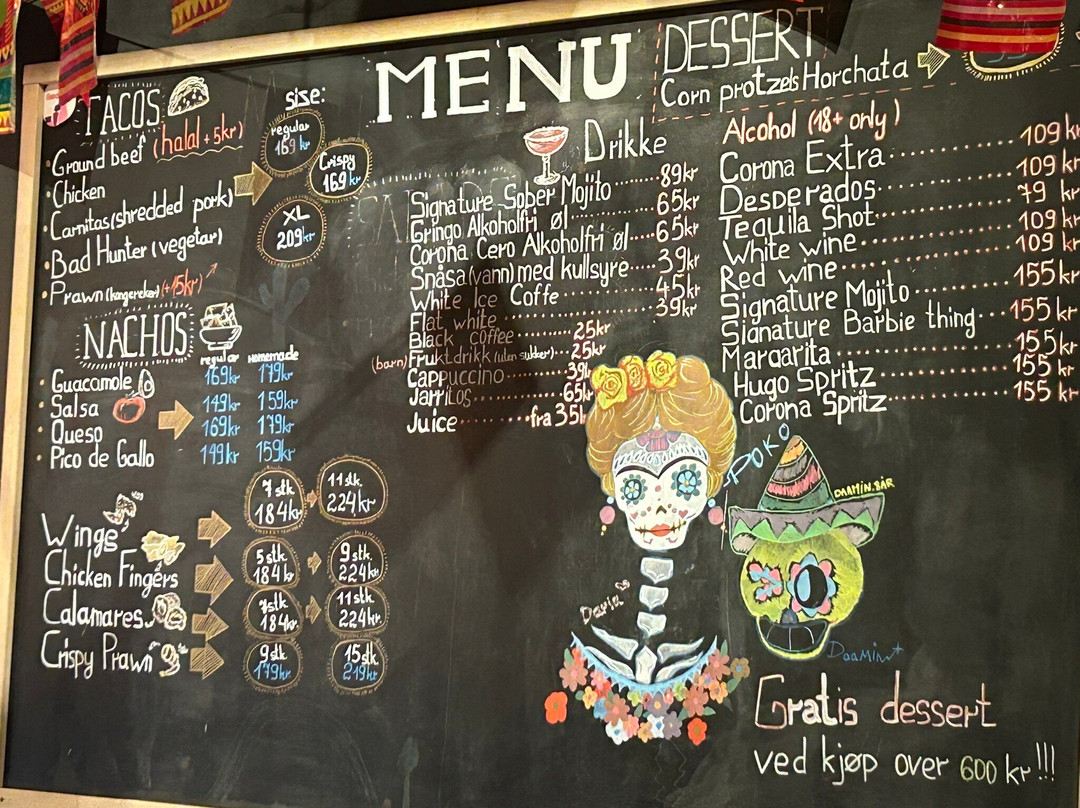 MENU
TACOS
size:
Ground beef (halal +5kr)
Chicken
Carnitas (shredded pork)
Bad Hunter (vegetar)
Prawn (kongereker) (+15kr)
regular
169 kr
Crispy
169 kr
XL
209 kr
NACHOS
regular Homemade
Guacamole 169kr 179kr
Salsa 149kr 159kr
Queso 169kr 179kr
Pico de Gallo 149kr 159kr
Wings 7 stk 184kr 11 stk 224kr
Chicken Fingers 5 stk 184kr 9 stk 224kr
Calamares 7 stk 184kr 11 stk 224kr
Crispy Prawn 9 stk 179kr 15 stk 219kr
Drikke
Signature Sober Mojito 89kr
Gringo Alkoholfri øl 65kr
Corona Cero Alkoholfri øl 65kr
Snåsa (vann) med kullsyre 39kr
White Ice Coffe 45kr
Flat white 39kr
Black coffee 25kr
(barn) Fruktdrikk (uten sukker) 25kr
Cappuccino 39k
Jarritos 65k
Juice fra 35k
DESSERT
Corn protzels Horchata
Alcohol (18+ only)
Corona Extra 109 kr
Desperados 109 kr
Tequila Shot 79 kr
White wine 109 kr
Red wine 109 kr
Signature Mojito 155 kr
Signature Barbie thing 155 kr
Margarita 155 kr
Hugo Spritz 155 kr
Corona Spritz 155 kr
POKO
DAAMIN.BÄR
Daria
Daamin
Gratis dessert
ved kjøp over 600 kr!!!